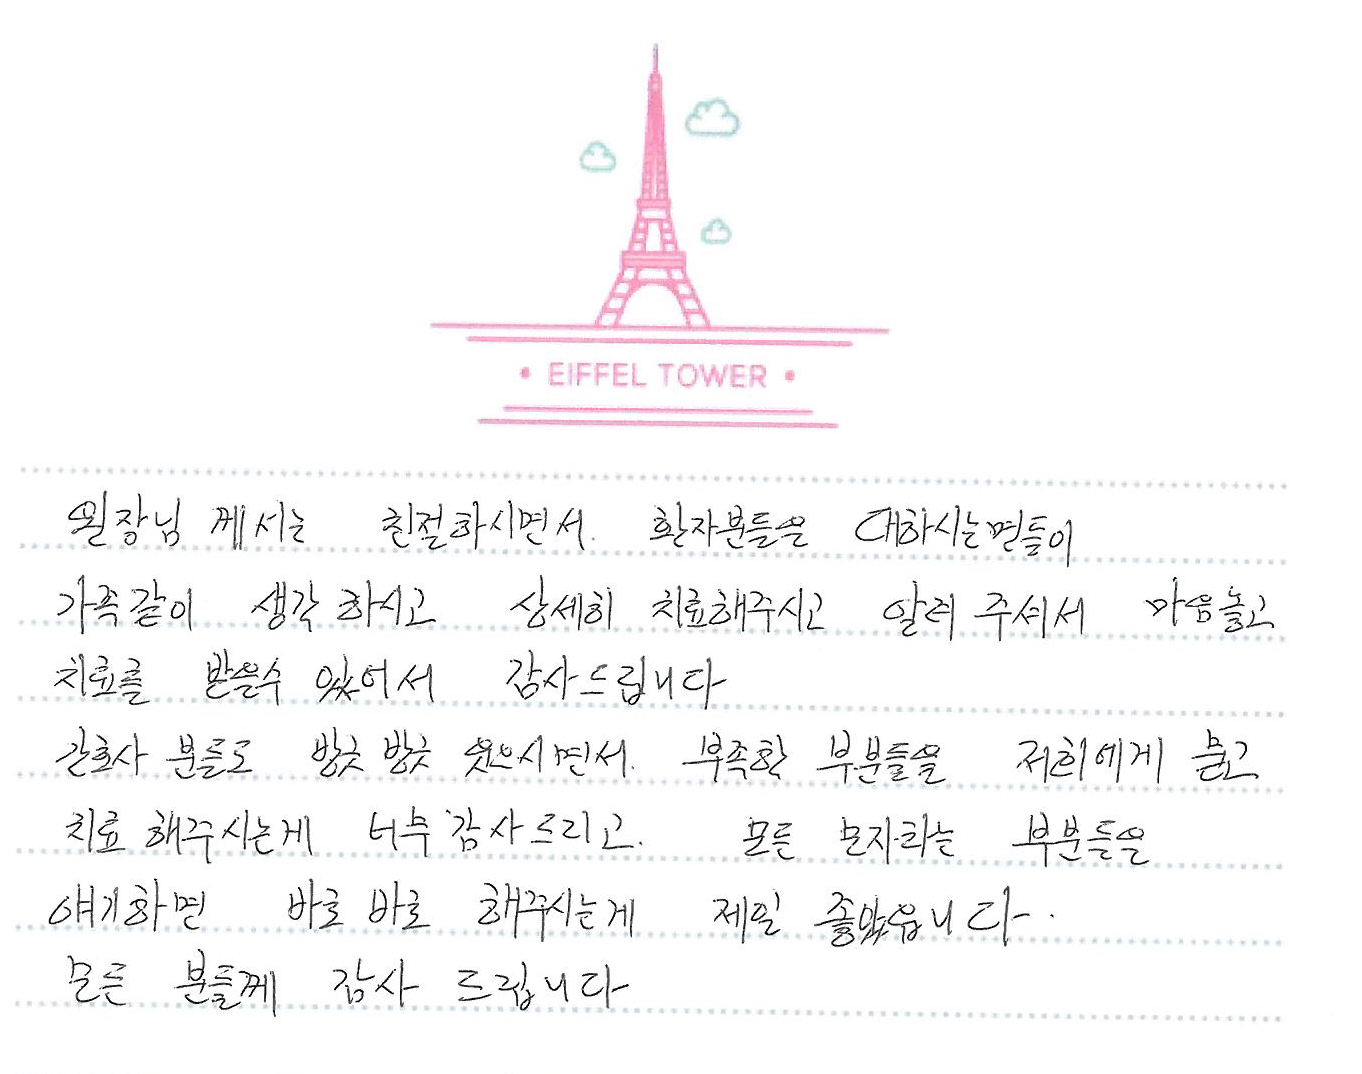 • EIFFEL TOWER •
원장님 께서는 친절하시면서. 환자분들을 대하시는면들이
가족같이 생각 하시고 상세히 치료해주시고 알려 주셔서 마음놓고
치료를 받을수 있어서 감사드립니다
간호사 분들도 방긋 방긋 웃으시면서. 부족한 부분들을 저희에게 묻고
치료 해주시는게 너무 감사드리고. 모든 모자라는 부분들을
얘기하면 바로 바로 해주시는게 제일 좋았읍니다.
모든 분들께 감사 드립니다